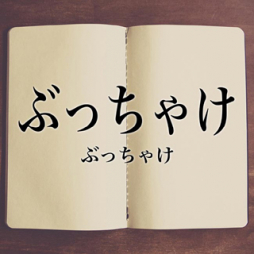 ぶっちゃけ
ぶっちゃけ